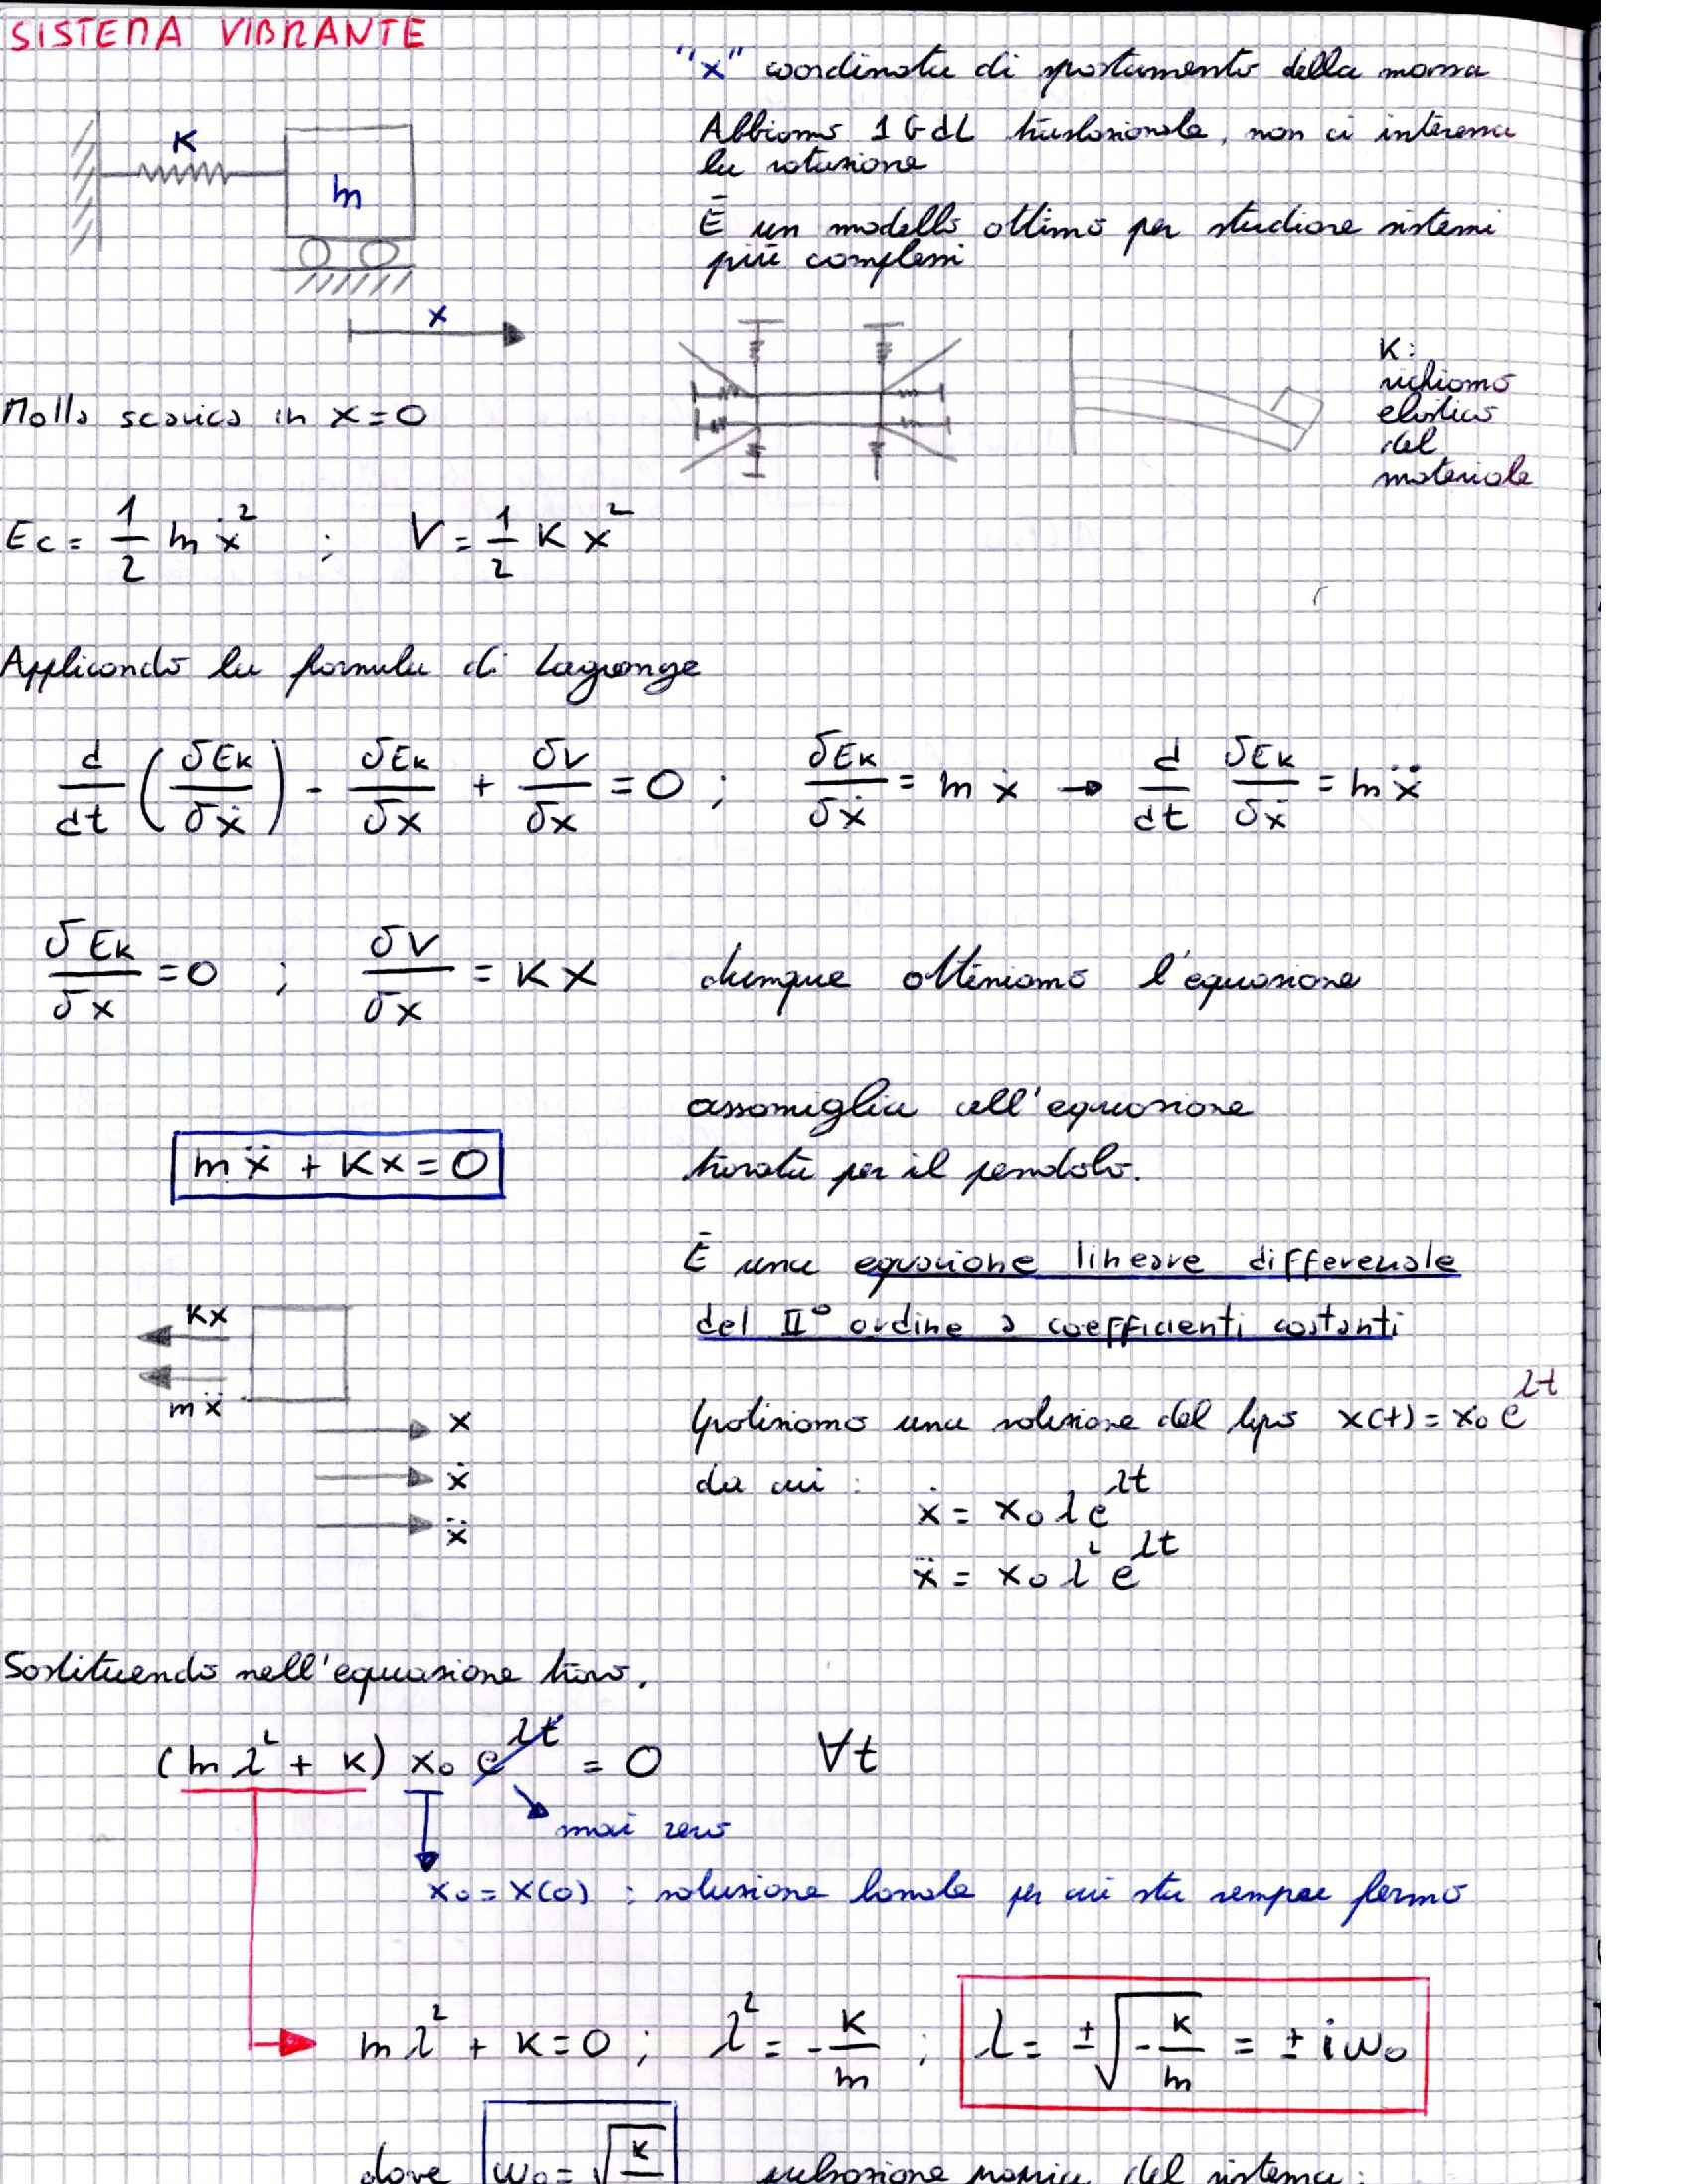 SISTEMA VIBRANTE
"x" coordinata di spostamento della massa
Abbiamo 1 GdL traslazionale, non ci interessa
la rotazione
È un modello ottimo per studiare sistemi
più complessi
K
m
x
Molla scarica in x=0
K:
richiamo
elastico
del
materiale
Ec = 1/2 m ẋ² ; V = 1/2 K x²
Applicando la formula di Lagrange
d/dt (δEk/δẋ) - δEk/δx + δV/δx = 0 ; δEk/δẋ = m ẋ → d/dt δEk/δẋ = m ẍ
δEk/δx = 0 ; δV/δx = K x dunque otteniamo l'equazione
assomiglia all'equazione
m ẍ + Kx = 0 trovata per il pendolo.
È una equazione lineare differenziale
del II° ordine a coefficienti costanti
Kx
mẍ
x
ẋ
ẍ
Ipotiziamo una soluzione del tipo x(t) = x₀ e^λt
da cui : ẋ = x₀ λ e^λt
ẍ = x₀ λ² e^λt
Sostituendo nell'equazione trovo.
(m λ² + K) x₀ e^λt = 0 ∀t
mai zero
x₀ = x(0) : soluzione banale per cui sta sempre fermo
m λ² + K = 0 ; λ² = - K/m ; λ = ± √(- K/m) = ± i ω₀
dove ω₀ = √K pulsazione propria del sistema: